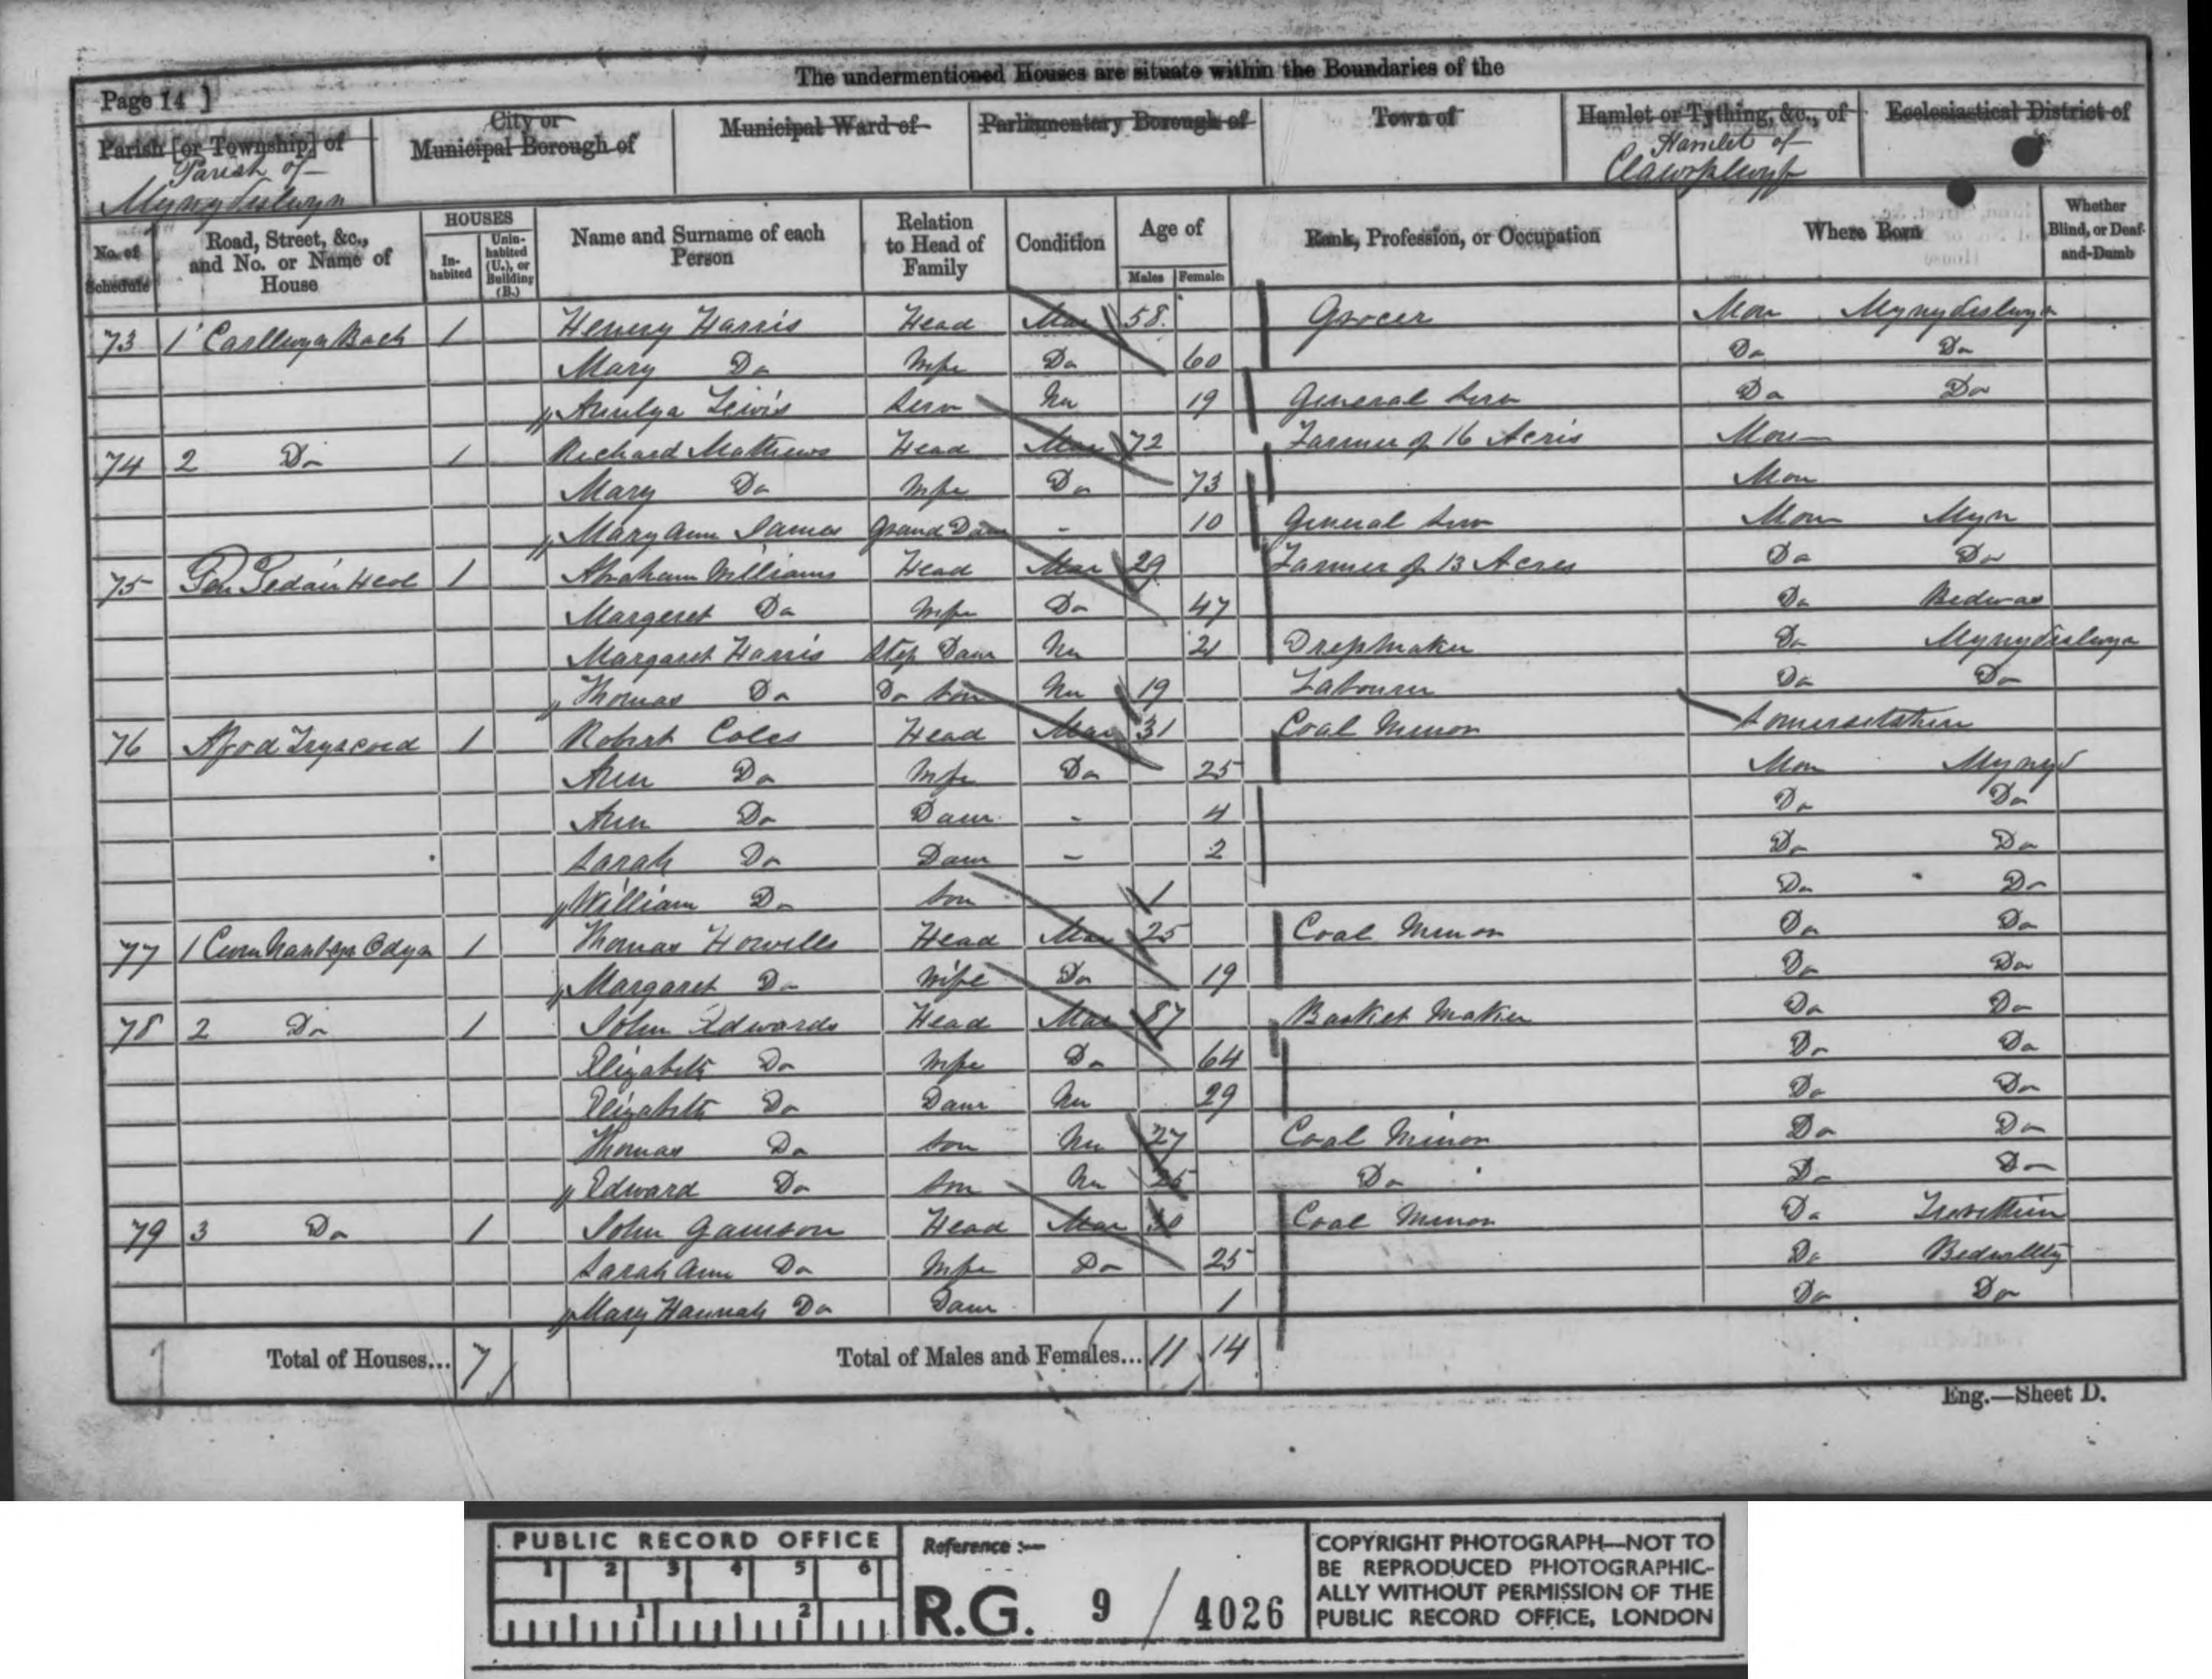 The undermentioned Houses are situate within the Boundaries of the
Page 14 ]
Parish [or Township] of
Parish of
Mynydislwyn
City or
Municipal Borough of
Municipal Ward of
Parliamentary Borough of
Town of
Hamlet or Tything, &c., of
Hamlet of
Clawrplwyf
Ecclesiastical District of
No. of Schedule
Road, Street, &c., and No. or Name of House
HOUSES
In-habited
Unin-habited (U.), or Building (B.)
Name and Surname of each Person
Relation to Head of Family
Condition
Age of
Males
Females
Rank, Profession, or Occupation
Where Born
Whether Blind, or Deaf-and-Dumb
73 1 Caellwyn Bach 1 Henry Harris Head Mar 58 Grocer Mon Mynydislwyn
Mary Do Wife Do 60 Do Do
Lewis Serv Un 19 General Serv Do Do
74 2 Do 1 Richard Mathews Head Mar 72 Farmer of 16 Acres Mon
Mary Do Wife Do 73 Mon
Mary Ann James Grand Daur - 10 General Serv Mon Myn
75 Pen Heol 1 Abraham Williams Head Mar 29 Farmer of 13 Acres Do Do
Margeret Do Wife Do 47 Do Bedwas
Margaret Harris Step Daur Un 21 Dressmaker Do Mynydislwyn
Thomas Do Do Son Un 19 Labourer Do Do
76 1 Robert Coles Head Mar 31 Coal Minor Somersetshire
Ann Do Wife Do 25 Mon Mynyd
Ann Do Daur - 4 Do Do
Sarah Do Daur - 2 Do Do
William Do Son 1 Do Do
77 1 1 Thomas Howells Head Mar 25 Coal Minor Do Do
Margaret Do Wife Do 19 Do Do
78 2 Do 1 John Edwards Head Mar Basket Maker Do Do
Elizabeth Do Wife Do 64 Do Do
Elizabeth Do Daur Un 29 Do Do
Thomas Do Son Un 27 Coal Minor Do Do
Edward Do Son Un 25 Do Do Do
79 3 Do 1 John Head Mar 30 Coal Minor Do Trevethin
Sarah Ann Do Wife Do 25 Do Bedwellty
Mary Hannah Do Daur 1 Do Do
Total of Houses... 7 Total of Males and Females... 11 14
Eng.—Sheet D.
PUBLIC RECORD OFFICE
1 2 3 4 5 6
1 2
Reference :—
R.G. 9 / 4026
COPYRIGHT PHOTOGRAPH—NOT TO
BE REPRODUCED PHOTOGRAPHIC-
ALLY WITHOUT PERMISSION OF THE
PUBLIC RECORD OFFICE, LONDON